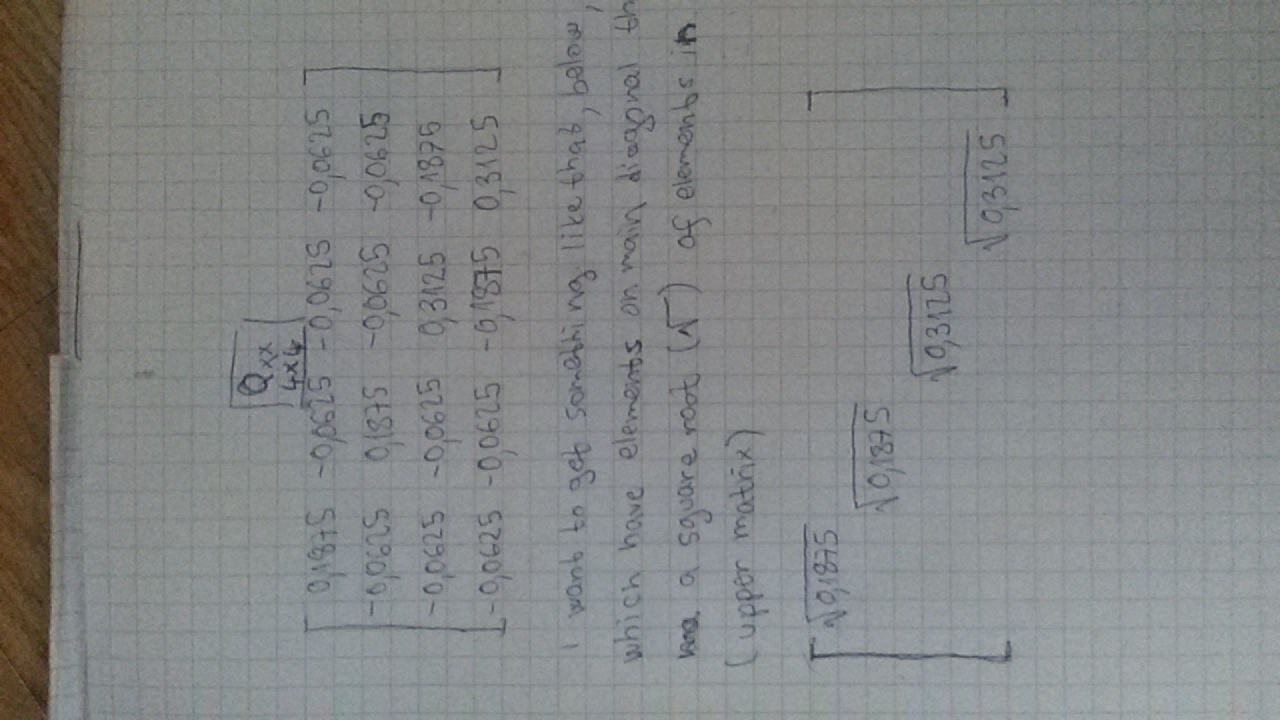 Qxx
4x4
0,1875 -0,0625 -0,0625 -0,0625
-0,0625 0,1875 -0,0625 -0,0625
-0,0625 -0,0625 0,3125 -0,1875
-0,0625 -0,0625 -0,1875 0,3125
I want to get something like that, below,
which have elements on main diagonal
a square root (√) of elements in
(upper matrix)
√0,1875
√0,1875
√0,3125
√0,3125